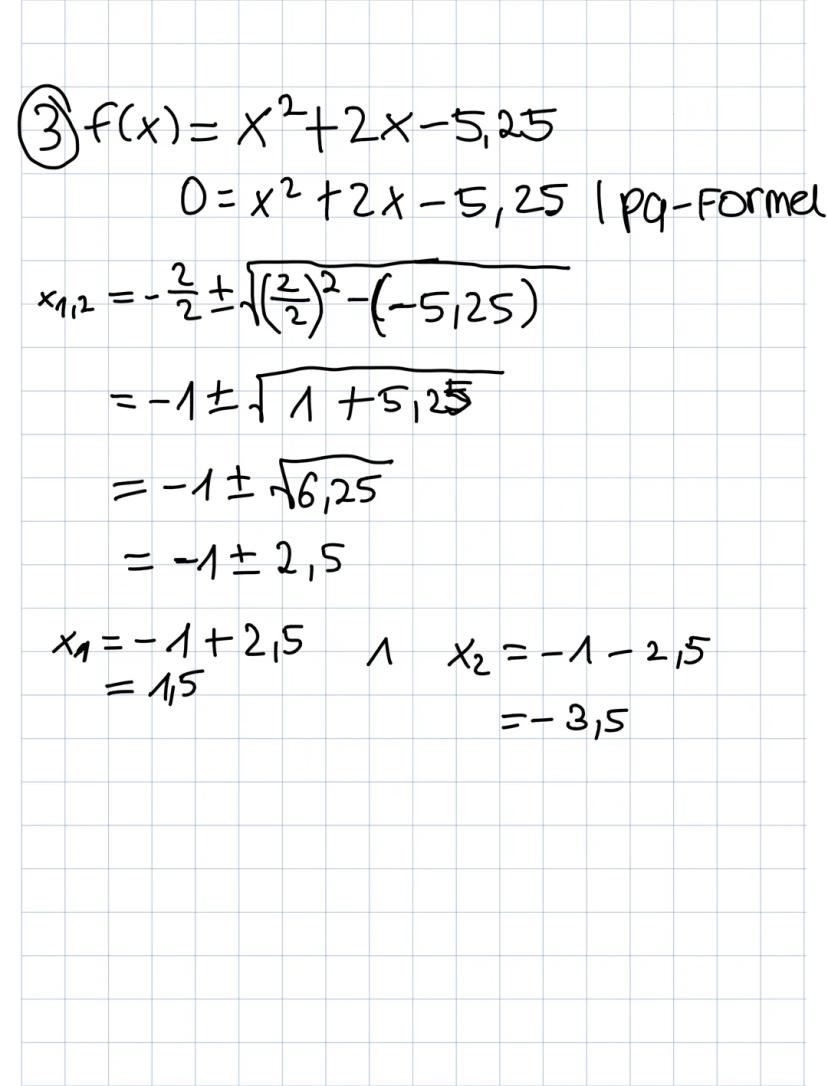 ③ f(x) = x² + 2x - 5,25
0 = x² + 2x - 5,25 | pq-Formel
x₁,₂ = -2/2 ± √((2/2)² - (-5,25))
= -1 ± √(1 + 5,25)
= -1 ± √6,25
= -1 ± 2,5
x₁ = -1 + 2,5 ∧ x₂ = -1 - 2,5
= 1,5
= -3,5